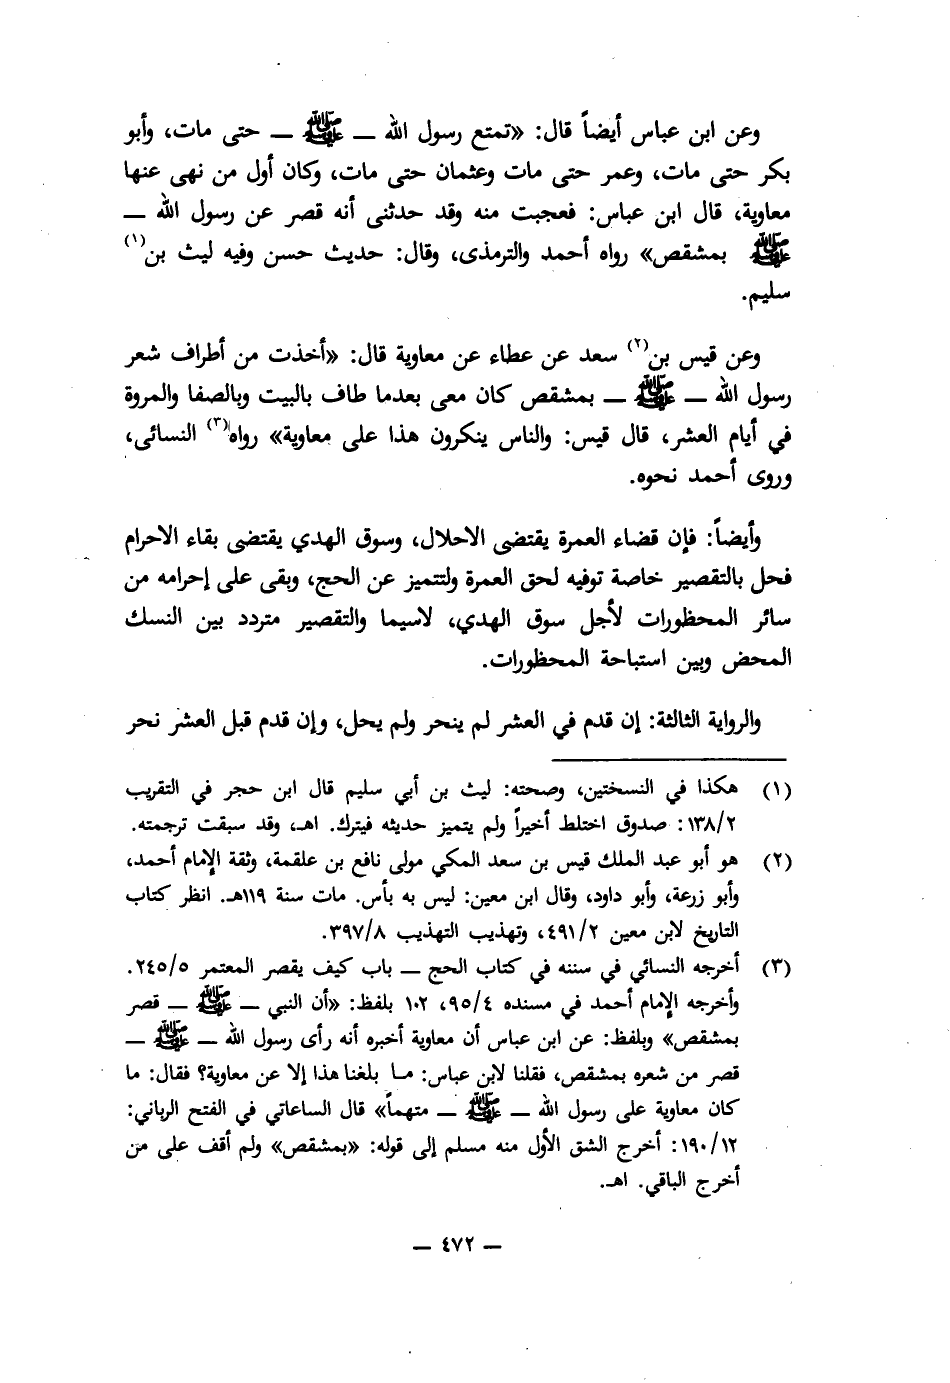 وعن ابن عباس أيضاً قال: «تمتع رسول الله — ﷺ — حتى مات، وأبو
بكر حتى مات، وعمر حتى مات وعثمان حتى مات، وكان أول من نهى عنها
معاوية، قال ابن عباس: فعجبت منه وقد حدثنى أنه قصر عن رسول الله —
ﷺ بمشقص» رواه أحمد والترمذى، وقال: حديث حسن وفيه ليث بن(١)
سليم.
وعن قيس بن(٢) سعد عن عطاء عن معاوية قال: «أخذت من أطراف شعر
رسول الله — ﷺ — بمشقص كان معى بعدما طاف بالبيت وبالصفا والمروة
في أيام العشر، قال قيس: والناس ينكرون هذا على معاوية» رواه(٣) النسائى،
وروى أحمد نحوه.
وأيضاً: فإن قضاء العمرة يقتضى الاحلال، وسوق الهدي يقتضى بقاء الاحرام
فحل بالتقصير خاصة توفيه لحق العمرة ولتتميز عن الحج، وبقى على إحرامه من
سائر المحظورات لأجل سوق الهدي، لاسيما والتقصير متردد بين النسك
المحض وبين استباحة المحظورات.
والرواية الثالثة: إن قدم في العشر لم ينحر ولم يحل، وإن قدم قبل العشر نحر
(١) هكذا في النسختين، وصحته: ليث بن أبي سليم قال ابن حجر في التقريب
١٣٨/٢: صدوق اختلط أخيراً ولم يتميز حديثه فيترك. اهـ، وقد سبقت ترجمته.
(٢) هو أبو عبد الملك قيس بن سعد المكي مولى نافع بن علقمة، وثقة الإمام أحمد،
وأبو زرعة، وأبو داود، وقال ابن معين: ليس به بأس. مات سنة ١١٩هـ. انظر كتاب
التاريخ لابن معين ٤٩١/٢، وتهذيب التهذيب ٣٩٧/٨.
(٣) أخرجه النسائي في سننه في كتاب الحج — باب كيف يقصر المعتمر ٢٤٥/٥.
وأخرجه الإمام أحمد في مسنده ٩٥/٤، ١٠٢ بلفظ: «أن النبي — ﷺ — قصر
بمشقص» وبلفظ: عن ابن عباس أن معاوية أخبره أنه رأى رسول الله — ﷺ —
قصر من شعره بمشقص، فقلنا لابن عباس: ما بلغنا هذا إلا عن معاوية؟ فقال: ما
كان معاوية على رسول الله — ﷺ — متهماً» قال الساعاتي في الفتح الرباني:
١٩٠/١٢: أخرج الشق الأول منه مسلم إلى قوله: «بمشقص» ولم أقف على من
أخرج الباقي. اهـ.
— ٤٧٢ —